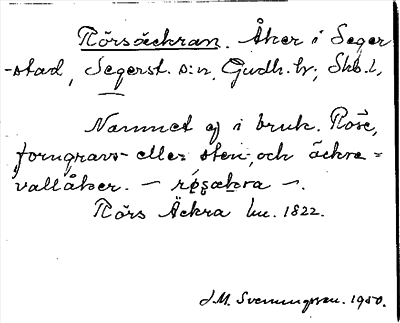 Rörsäckran. Åker i Seger
-stad, Segerst. s:n, Gudh. hr, Skb. l,
Namnet ej i bruk. Röse,
forngravs- eller sten, och äckra =
vallåker. — rö̜sækra —.
Rörs Äckra hu. 1822.
J.M. Svenungsson. 1950.